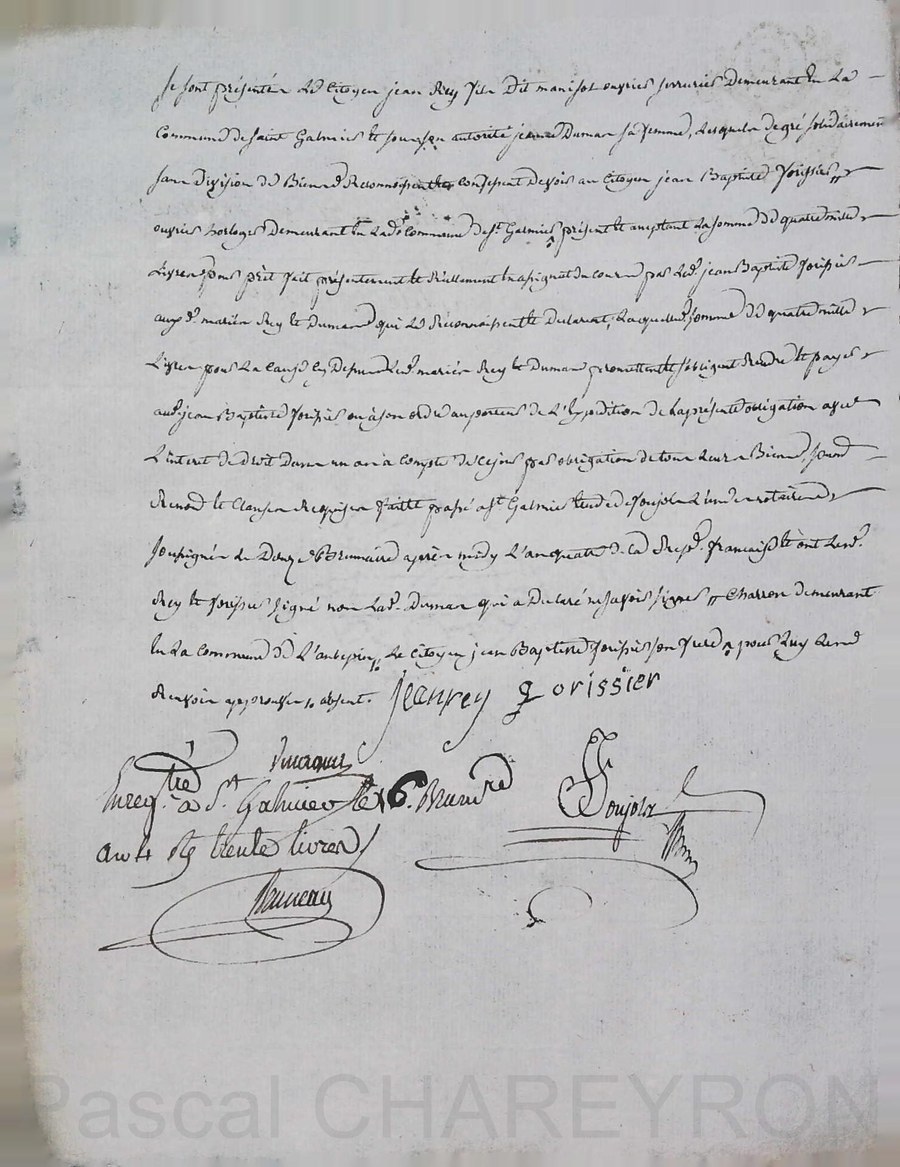 Se sont présentés le Citoyen jean Rey fils Dit manisol ouvrier serrurier Demeurant En La
Commune de saint Galmier et sous son autorité jeanne Dumas sa femme, Lesquels de gré solidairement
sans Division de Biens Reconnoissent et confessent Devoir au Citoyen jean Baptiste Forissier
ouvrier horloger Demeurant En Lad. Commune de St. Galmier présent et acceptant La somme de quatre mille
Livres pour prêt fait présentement et Réellement En assignats du cours par led. jean Baptiste Forissier
auxd. mariés Rey et Dumas qui le Reconnoissent et Declarent, Laquelle somme de quatre mille
Livres pour La cause cy Dessus Led. mariés Rey et Dumas promettent et s'obligent Rendre et payer
aud. jean Baptiste Forissier ou à son ordre au porteur de L'Expédition de La présente obligation avec
L'interet de Droit Dans un an à compter de ce jour par obligation de tous Leurs Biens, soumis
Renon. et Clauses Requises fait et passé a St. Galmier Etude de Soujols L'un des notaires
soussignés Le Brumaire après midy L'an quatre de La Rep. francaise et ont Led.
Rey et Forissier signé non Lad. Dumas qui a Declaré ne savoir signer Charron demeurant
En La Commune de Le Citoyen jean Baptiste Forissier son frere pour Luy Le
Renvoir approuvés absent. jean rey forissier
Enregtré à St Galmier le 16. Brumre
an 4 Rç trente livres
Soujols